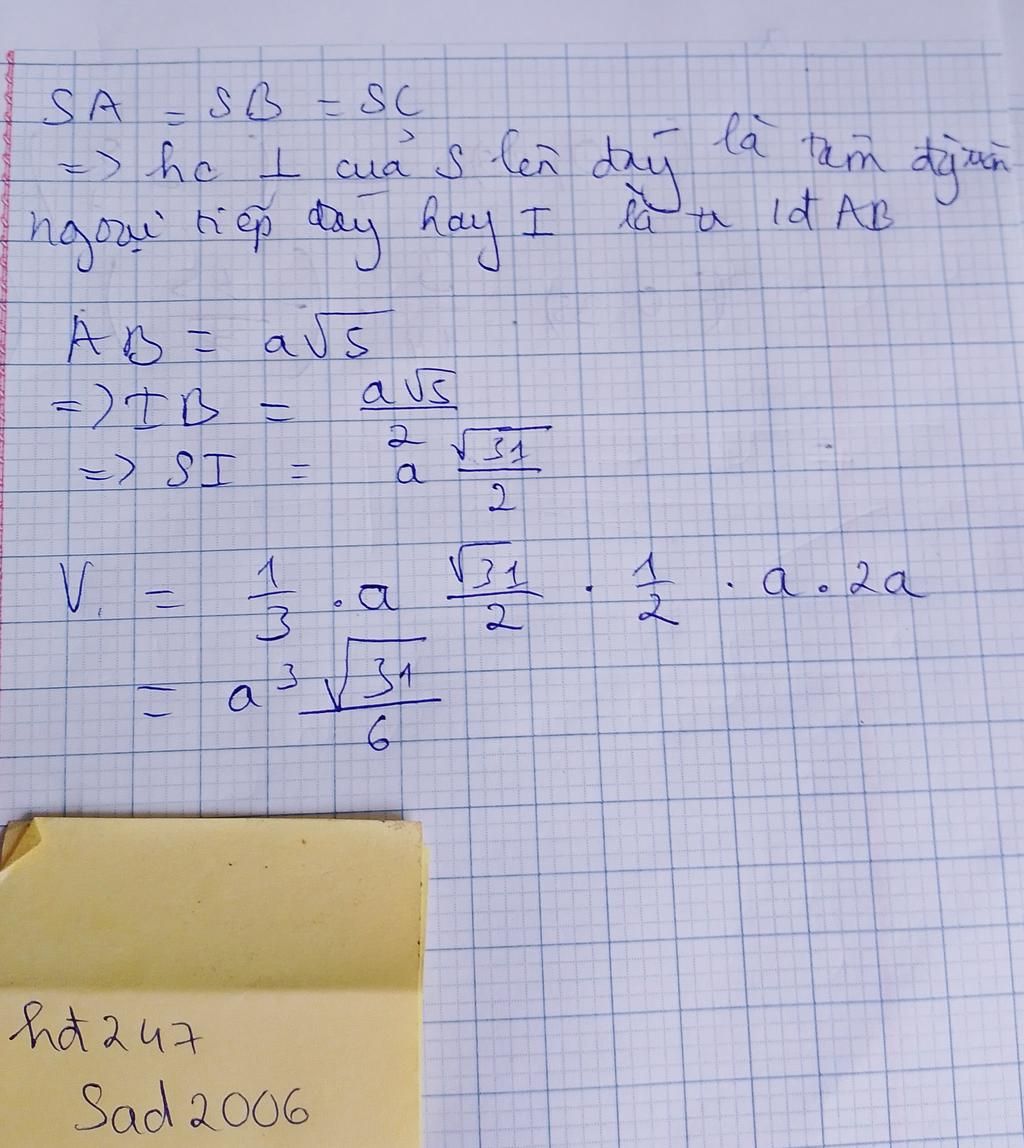 SA = SB = SC
=> hc ⊥ của S lên đáy là tâm đường
ngoại tiếp đáy hay I là tđ AB
AB = a√5
=> IB = a√5/2
=> SI = a √31/2
V. = 1/3 . a √31/2 . 1/2 . a . 2a
= a³ √31/6
hđ247
Sad2006